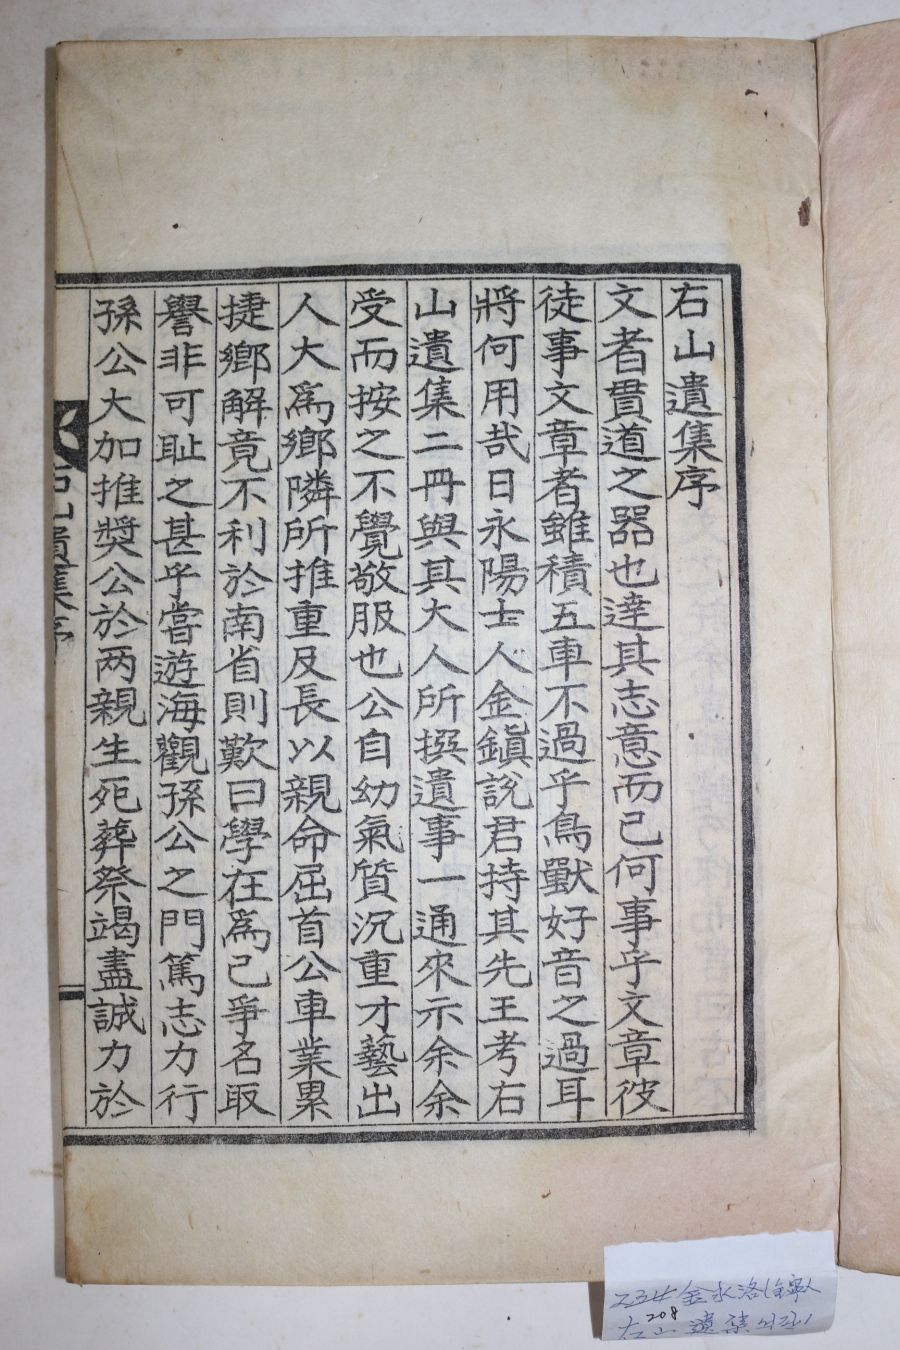 右山遺集序
文者貫道之器也達其志意而已何事乎文章彼
徒事文章者雖積五車不過乎鳥獸好音之過耳
將何用哉日永陽士人金鎭說君持其先王考右
山遺集二冊與其大人所撰遺事一通來示余余
受而按之不覺敬服也公自幼氣質沉重才藝出
人大爲鄉隣所推重及長以親命屈首公車業累
捷鄉解竟不利於南省則歎曰學在爲己爭名取
譽非可恥之甚乎嘗遊海觀孫公之門篤志力行
孫公大加推奬公於两親生死葬祭竭盡誠力於
右山遺集序
234 金永洛
208
右山遺集